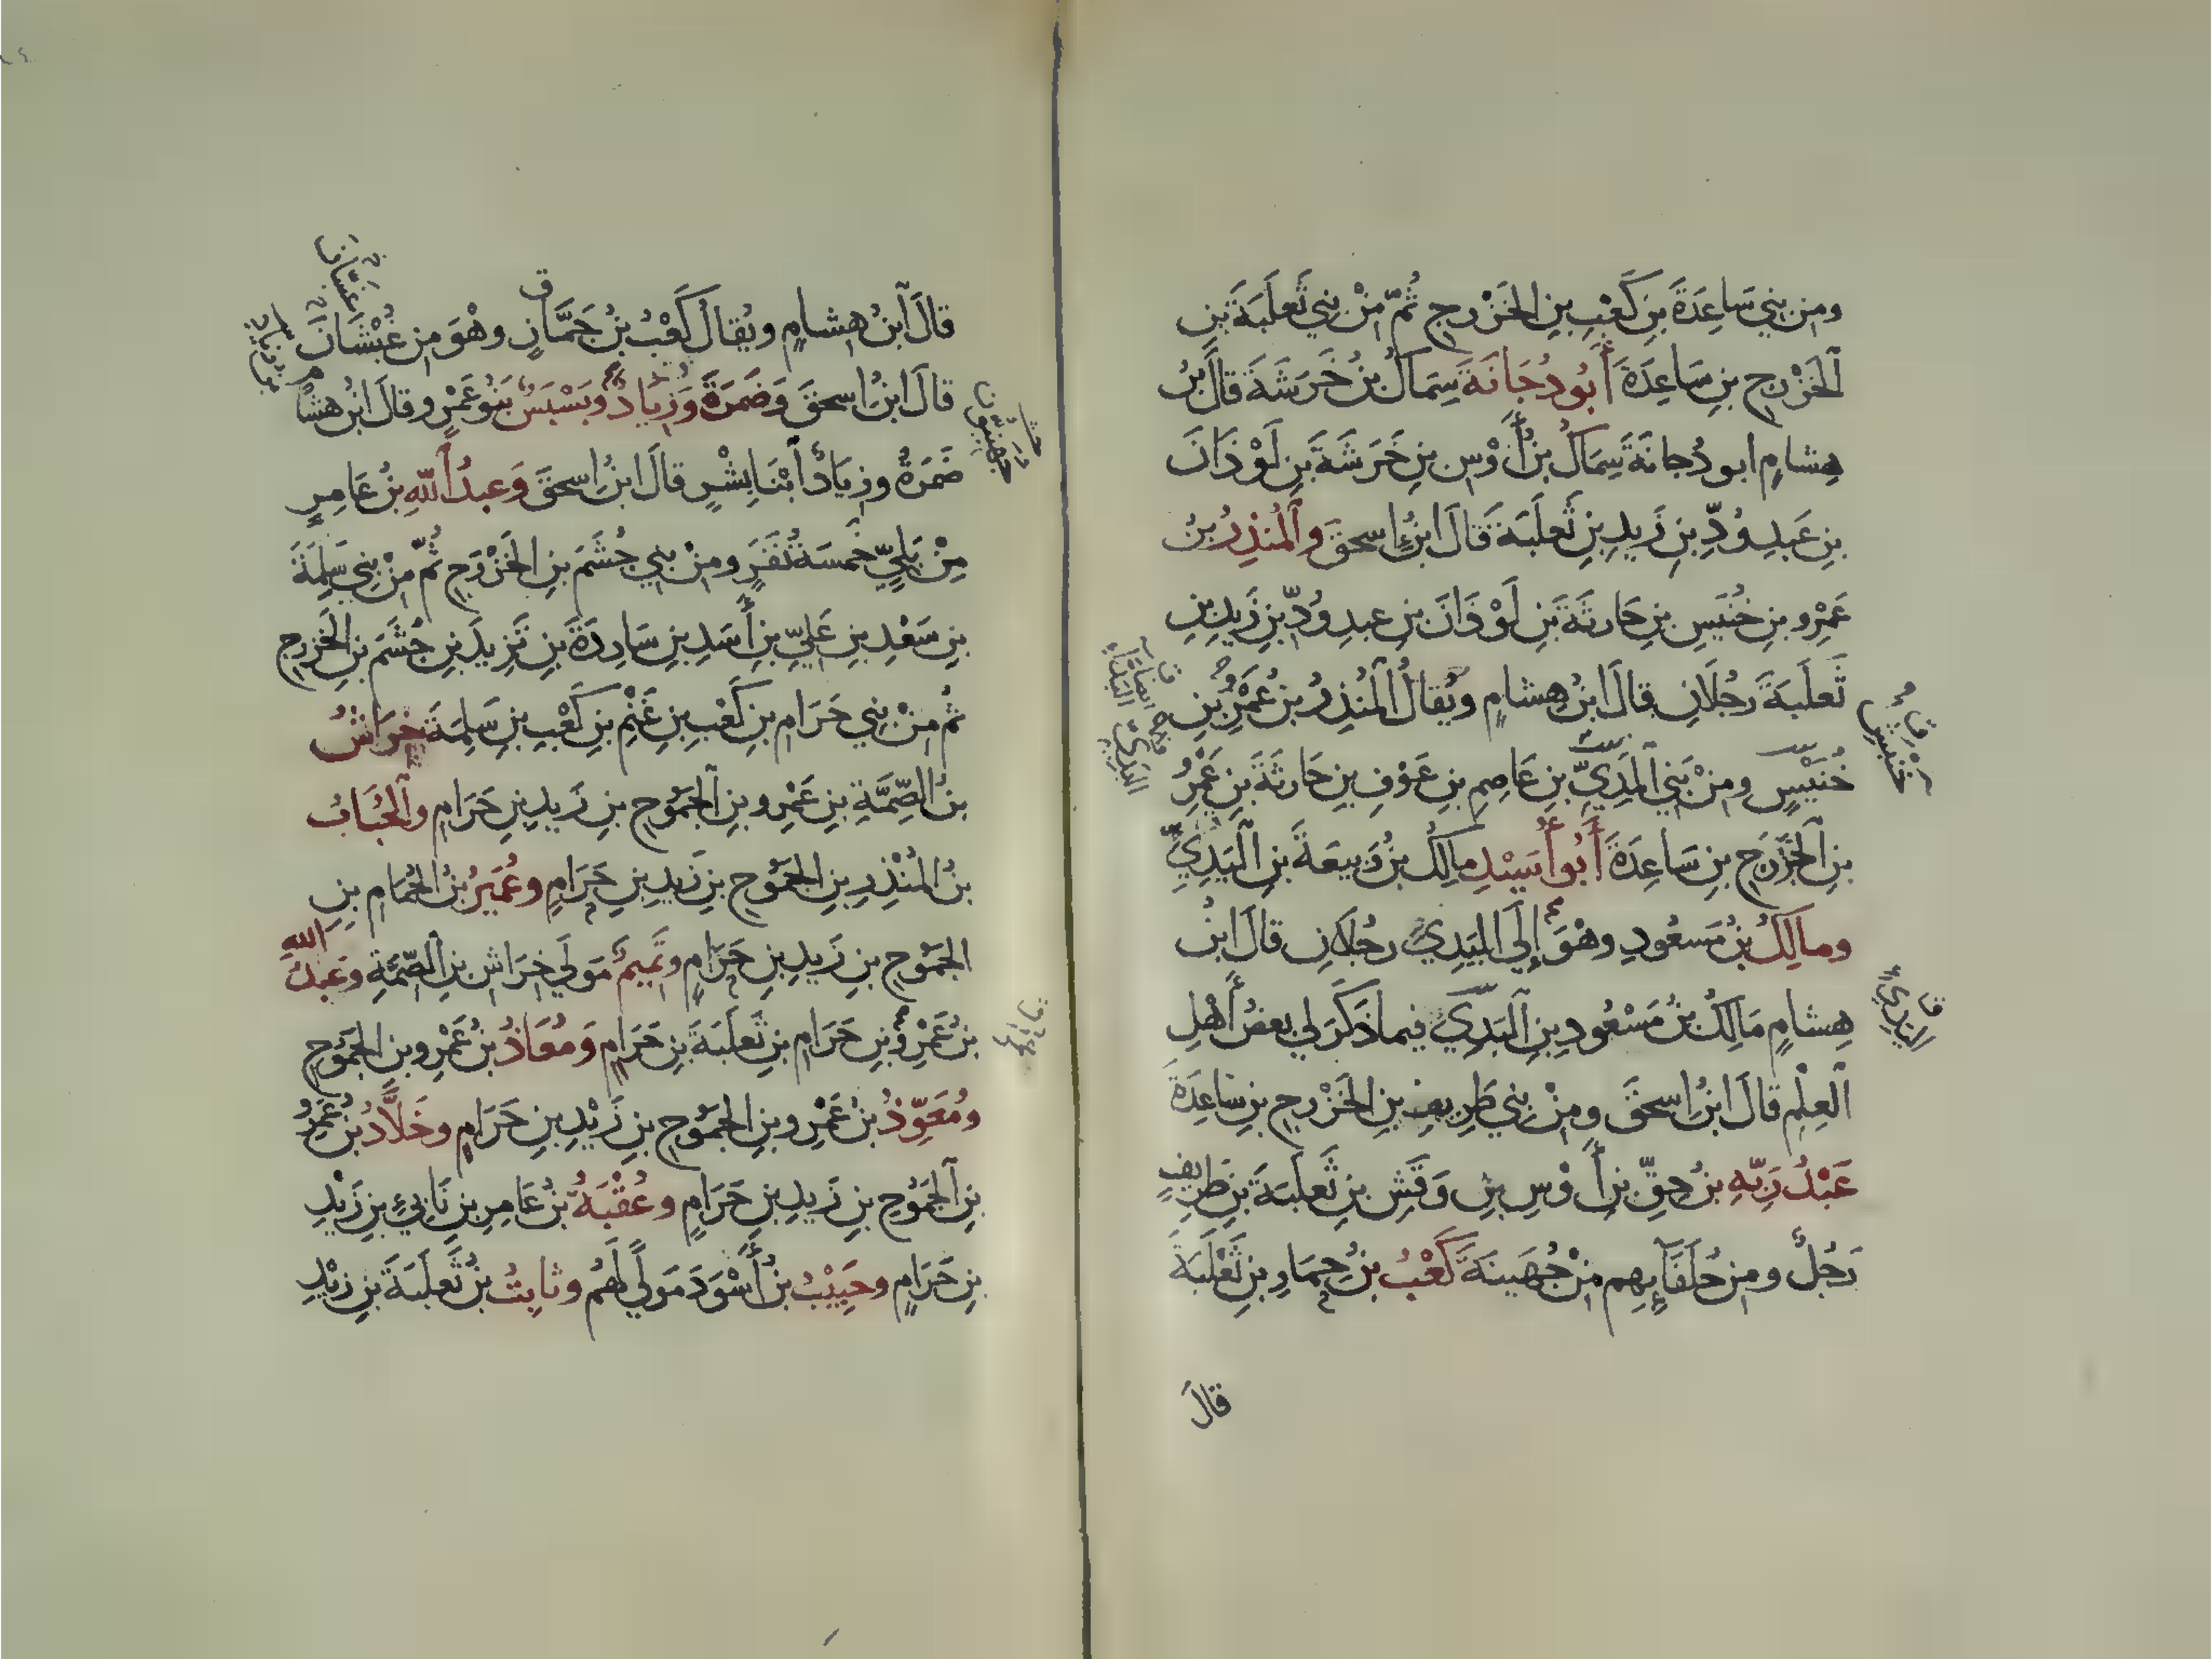 ومن بني سَاعِدَةَ بنِ كَعْبِ بنِ الخَزْرجِ ثُمَّ مِنْ بني ثَعلَبَةَ بنِ
ٱلخَزْرجِ بنِ سَاعِدَةَ أَبُو دُجَانَةَ سِمَاكُ بنُ خَرَشَةَ قالَ بنُ
هِشامٍ ابو دُجانَةَ سِمَاكُ بنُ أَوْسِ بنِ خَرَشَةَ بنِ لَوْذَانَ
بنِ عَبدِ وُدِّ بنِ زَيدِ بنِ ثَعلَبَةَ قَالَ ابنُ إسحقَ وٱلمُنذِرُ بنُ
عَمْرِو بنِ خُنَيسِ بنِ حَارثَةَ بنِ لَوْذَانَ بنِ عبدِ وُدِّ بنِ زَيدِ بنِ
ثَعلَبَةَ رَجُلَانِ قالَ ابنُ هِشامٍ ويُقالُ ٱلمُنذِرُ بنُ عَمْرِو بنِ
خُنَيْسٍ ومنْ بَني ٱلبَدِيِّ بنِ عَاصِمِ بنِ عَوْفِ بنِ حَارثَةَ بنِ عَمْرِو
بنِ ٱلخَزْرَجِ بنِ سَاعِدَةَ أَبُو أُسَيْدِ مالِكُ بنُ رَبيعَةَ بنِ ٱلبَدِيِّ
ومالِكُ بنُ مَسعُودِ وهْوَ إلَى البَدِيِّ رجُلانِ قالَ ابنُ
هِشامٍ مَالِكُ بنُ مَسْعُودِ بنِ ٱلبَدِيِّ فيما ذَكَرَ لي بعضُ أَهْلِ
ٱلعِلْمِ قالَ ابنُ اسحقَ ومِنْ بني طَرِيفِ بنِ الخَزْرجِ بنِ سَاعِدَةَ
عَبْدُ رَبِّهِ بنُ حِقِّ بنِ أَوْسِ بنِ وَقَشِ بنِ ثَعلَبَةَ بنِ طَرِيفٍ
رَجُلٌ ومن حُلَفَآئِهِم مِنْ جُهَينَةَ كَعْبُ بنُ حِمَارِ بنِ ثَعْلَبَةَ
خُنَيْسٍ
البَدِيّ
قالَ
قالَ ٱبنُ هِشامٍ ويُقالُ كَعْبُ بنُ جَمَّازٍ وهْوَ من غُبْشَانَ
غسّان
قالَ ابنُ اسحقَ وَضَمرَةُ وَزِيَادٌ وَبَسْبَسُ بَنُو عَمْرٍو وقالَ ابنُ هشام
ضَمرَةُ وزِيَادٌ ٱبْنَا بِشْرٍ قالَ ابنُ اسحقَ وَعبدُ اللّٰهِ بنُ عَامِرٍ
مِنْ بَلِيٍّ خَمسَةُ نَفَرٍ ومِنْ بني جُشَمَ بنِ الخَزْرَجِ ثُمَّ مِنْ بَني سَلِمَةَ
بنِ سَعْدِ بنِ عَلِيِّ بنِ أَسَدِ بنِ سَارِدَةَ بنِ تَزِيدَ بنِ جُشَمَ بنِ الخَزرجِ
ثُم مِنْ بني حَرَامِ بنِ كَعْبِ بنِ غَنْمِ بنِ كَعْبِ بنِ سَلِمَةَ خِرَاشُ
بنُ ٱلصِّمَّةِ بنِ عَمْرِو بنِ ٱلجَمُوحِ بنِ زَيدِ بنِ حَرَامٍ وٱلحُبَابُ
بنُ المُنْذِرِ بنِ الجَمُوحِ بنِ زَيدِ بنِ حَرَامٍ وعُمَيْرُ بنُ الحُمَامِ بنِ
الجَمُوحِ بنِ زَيدِ بنِ حَرَامٍ وتَميمٌ مَولَى خِرَاشِ بنِ ٱلصِّمَّةِ وعَبدُ اللهِ
بنُ عَمْرِو بنِ حَرَامِ بنِ ثَعلَبَةَ بنِ حَرَامٍ وَمُعَاذُ بنُ عَمْرِو بنِ الجَمُوحِ
ومُعَوِّذُ بنُ عَمْرِو بنِ الجَمُوحِ بنِ زَيْدِ بنِ حَرَامٍ وخَلَّادُ بنُ عَمْرِو
بنِ ٱلجَمُوحِ بنِ زَيدِ بنِ حَرَامٍ وعُقْبَةُ بنُ عَامِرِ بنِ نَابِيءِ بنِ زَيْدِ
بنِ حَرَامٍ وحَبِيْبُ بنُ أَسْوَدَ مَولًى لَهُم وثابِتُ بنُ ثَعلَبَةَ بنِ زيْدِ